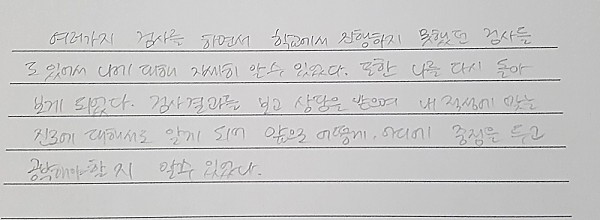 여러가지 검사를 하면서 학교에서 진행하지 못했던 검사들
도 있어서 나에 대해 자세히 알 수 있었다. 또한 나를 다시 돌아
보게 되었다. 검사결과를 보고 상담을 받으며 내 적성에 맞는
진로에 대해서도 알게 되어 앞으로 어떻게, 어디에 중점을 두고
공부해야할 지 알 수 있었다.